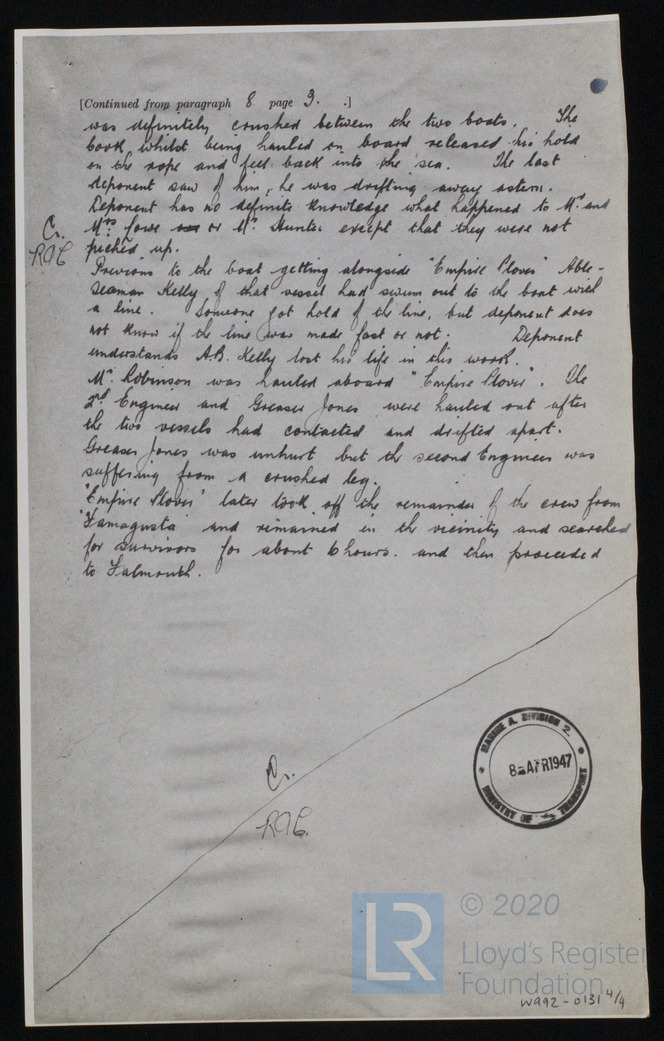 [Continued from paragraph 8 page 3. .]
was definitely crushed between the two boats. The
Cook, whilst being hauled on board released his hold
on the rope and fell back into the sea. The last
deponent saw of him, he was drifting away astern.
Deponent has no definite knowledge what happened to Mr and
Mrs or Mr. Hunter except that they were not
picked up.
Cr.
R.A.C
Previous to the boat getting alongside "Empire Plover" Able-
seaman Kelly of that vessel had swum out to the boat with
a line. Someone got hold of the line, but deponent does
not know if the line was made fast or not. Deponent
understands A.B. Kelly lost his life in this work.
Mr. Robinson was hauled aboard "Empire Plover". The
2nd Engineer and Greaser Jones were hauled out after
the two vessels had contacted and drifted apart.
Greaser Jones was unhurt but the second Engineer was
suffering from a crushed leg.
"Empire Plover" later took off the remainder of the crew from
"Famagusta" and remained in the vicinity and searched
for survivors for about 6 hours. and then proceeded
to Falmouth.
Cr.
R.A.C.
MARINE A. DIVISION 2.
8 - APR 1947
MINISTRY OF TRANSPORT
LR
© 2020
Lloyd's Register
Foundation
W992-0131 4/4